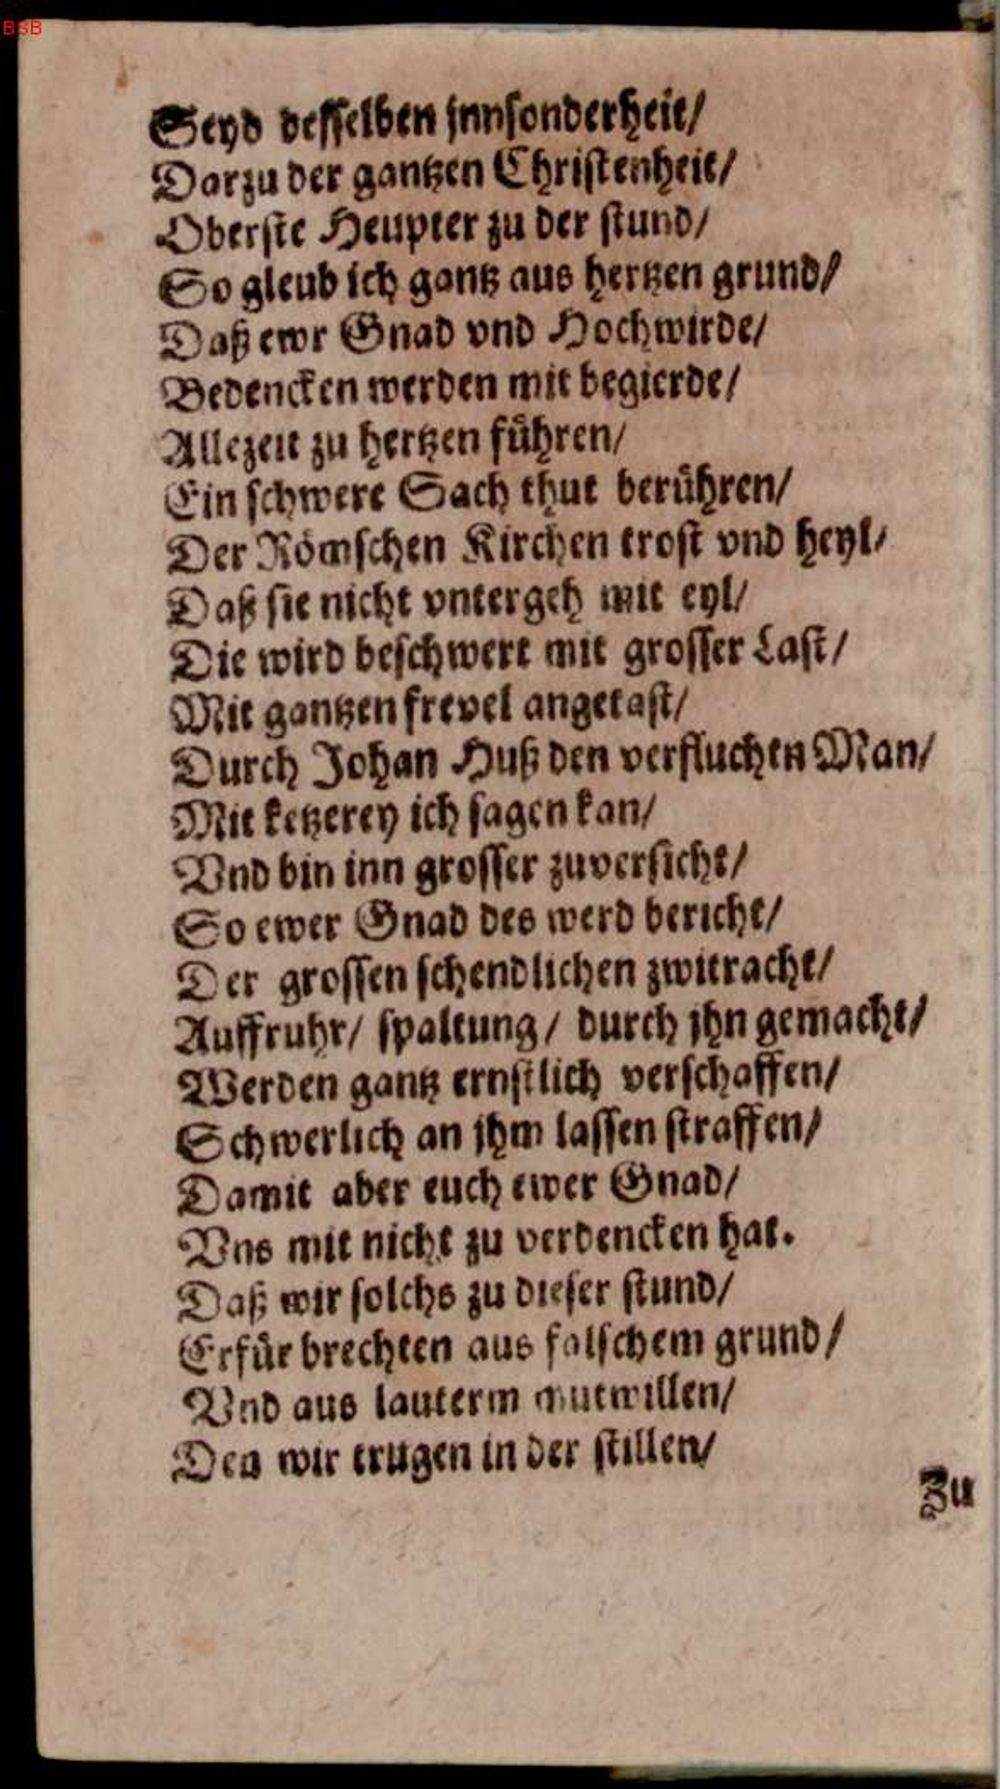 BSB
Seyd desselben jnnsonderheit/
Darzu der gantzen Christenheit/
Oberste Heupter zu der stund/
So gleub ich gantz aus hertzen grund/
Daß ewr Gnad vnd Hochwirde/
Bedencken werden mit begierde/
Allezeit zu hertzen führen/
Ein schwere Sach thut berühren/
Der Römschen Kirchen trost vnd heyl/
Daß sie nicht vntergeh mit eyl/
Die wird beschwert mit grosser Last/
Mit gantzen frevel angetast/
Durch Johan Huß den verfluchten Man/
Mit ketzerey ich sagen kan/
Vnd bin inn grosser zuversicht/
So ewer Gnad des werd bericht/
Der grossen schendlichen zwitracht/
Auffruhr/ spaltung/ durch jhn gemacht/
Werden gantz ernstlich verschaffen/
Schwerlich an jhm lassen straffen/
Damit aber euch ewer Gnad/
Vns mit nicht zu verdencken hat.
Daß wir solchs zu dieser stund/
Erfür brechten aus falschem grund/
Vnd aus lauterm mutwillen/
Den wir trugen in der stillen/
Zu